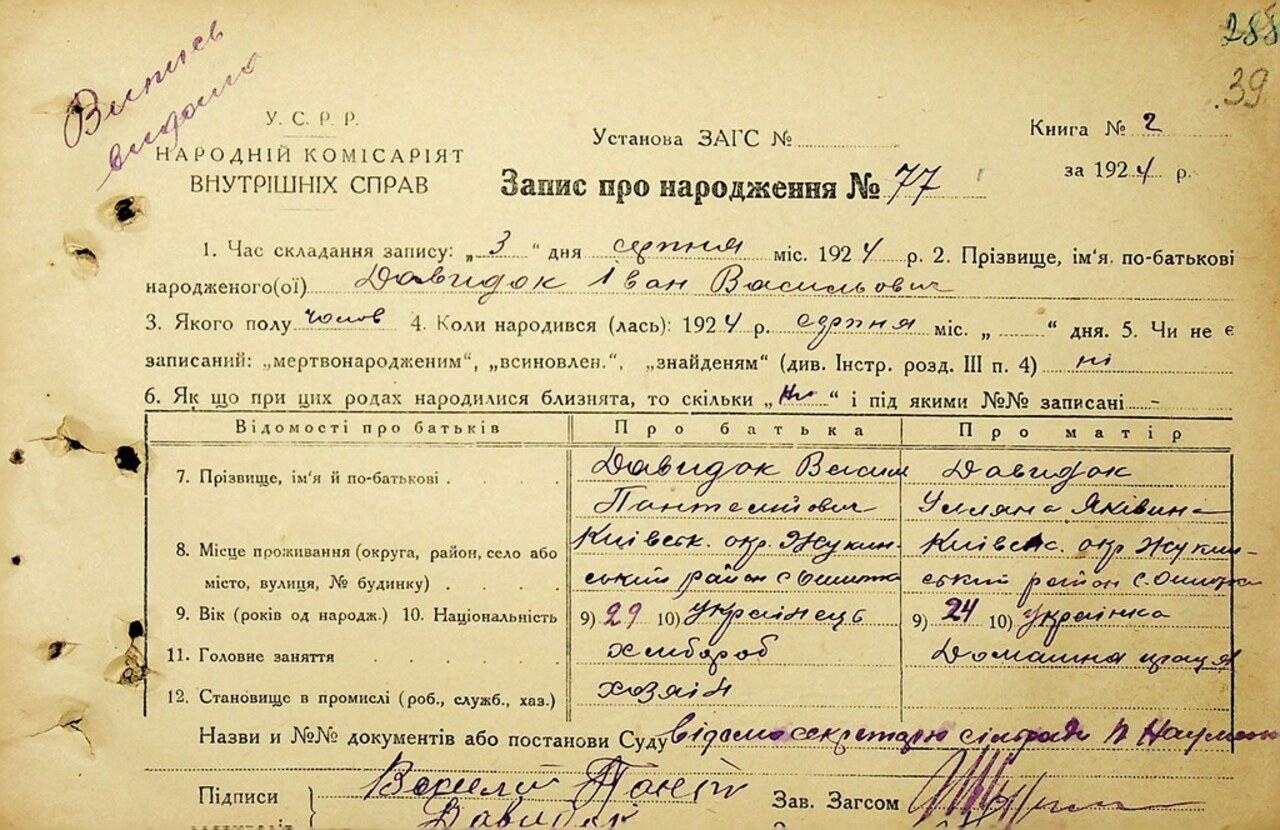 Випись
видано
288
39
У. С. Р. Р.
НАРОДНІЙ КОМІСАРІЯТ
ВНУТРІШНІХ СПРАВ
Установа ЗАГС №
Книга № 2
за 1924 р.
Запис про народження № 77
1. Час складання запису: „ 3 “ дня серпня міс. 1924 р. 2. Прізвище, ім'я, по-батькові
народженого(ої) Давидок Іван Васильович
3. Якого полу чолов 4. Коли народився (лась): 1924 р. серпня міс. „ “ дня. 5. Чи не є
записаний: „мертвонародженим“, „всиновлен.“, „знайденям“ (див. Інстр. розд. III п. 4) ні
6. Як що при цих родах народилися близнята, то скільки „ Ні “ і під якими №№ записані -
Відомості про батьків Про батька Про матір
7. Прізвище, ім'я й по-батькові Давидок Васил Давидок
Пантелійович Уляна Яківна
8. Місце проживання (округа, район, село або Київськ. окр. Жукин- Київськ. окр. Жукин-
місто, вулиця, № будинку) ський район с ський район с.
9. Вік (років од народж.) 10. Національність 9) 29 10) українець 9) 24 10) українка
11. Головне заняття хлібороб Домашна праця
12. Становище в промислі (роб., служб., хаз.) хозяїн
Назви и №№ документів або постанови Суду відомо секретарю сільради
Підписи Василь Зав. Загсом
Давидок